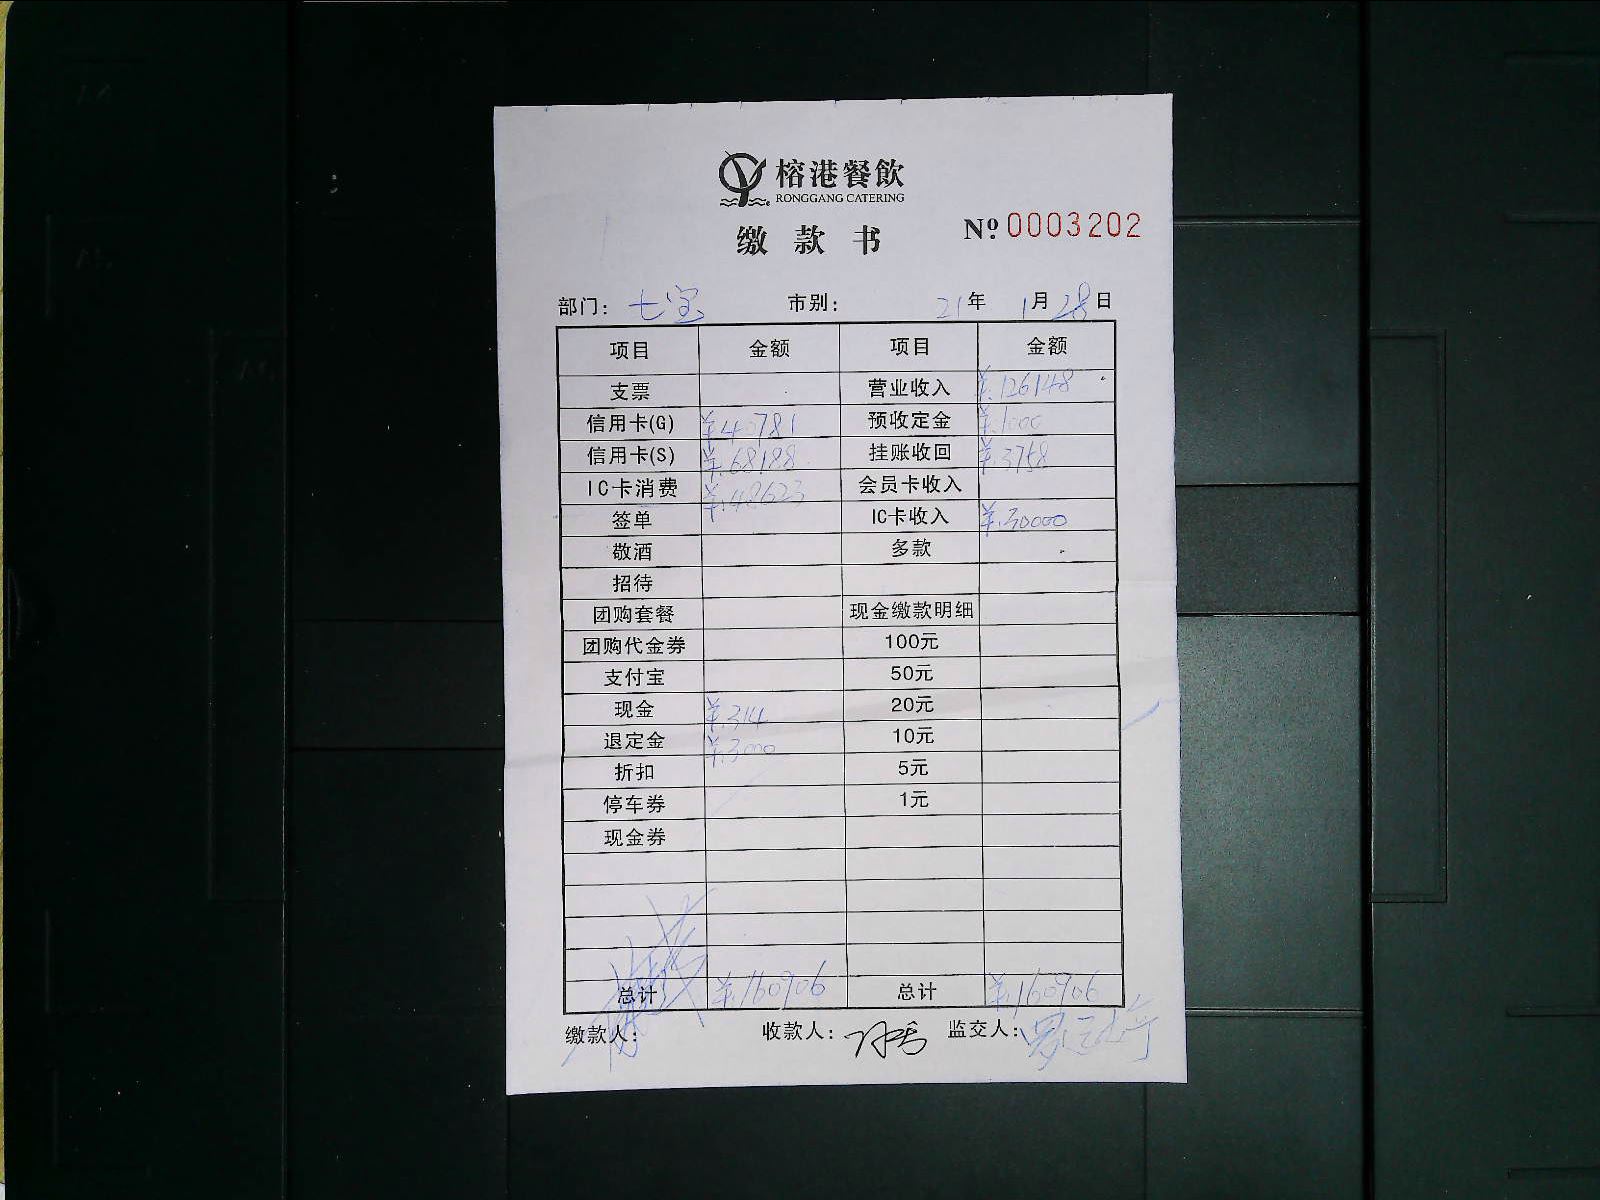 榕港餐飲
RONGGANG CATERING
缴款书
Nº 0003202
部门: 七宝 市别: 21年 1月28日
项目 金额 项目 金额
支票 营业收入 ¥.126148
信用卡(G) ¥.40781 预收定金 ¥.1000
信用卡(S) ¥.68188 挂账收回 ¥.3758
IC卡消费 ¥.48623 会员卡收入
签单 IC卡收入 ¥.30000
敬酒 多款
招待
团购套餐 现金缴款明细
团购代金券 100元
支付宝 50元
现金 ¥.314 20元
退定金 ¥.3000 10元
折扣 5元
停车券 1元
现金券
总计 ¥.160906 总计 ¥.160906
缴款人: 收款人: 监交人: